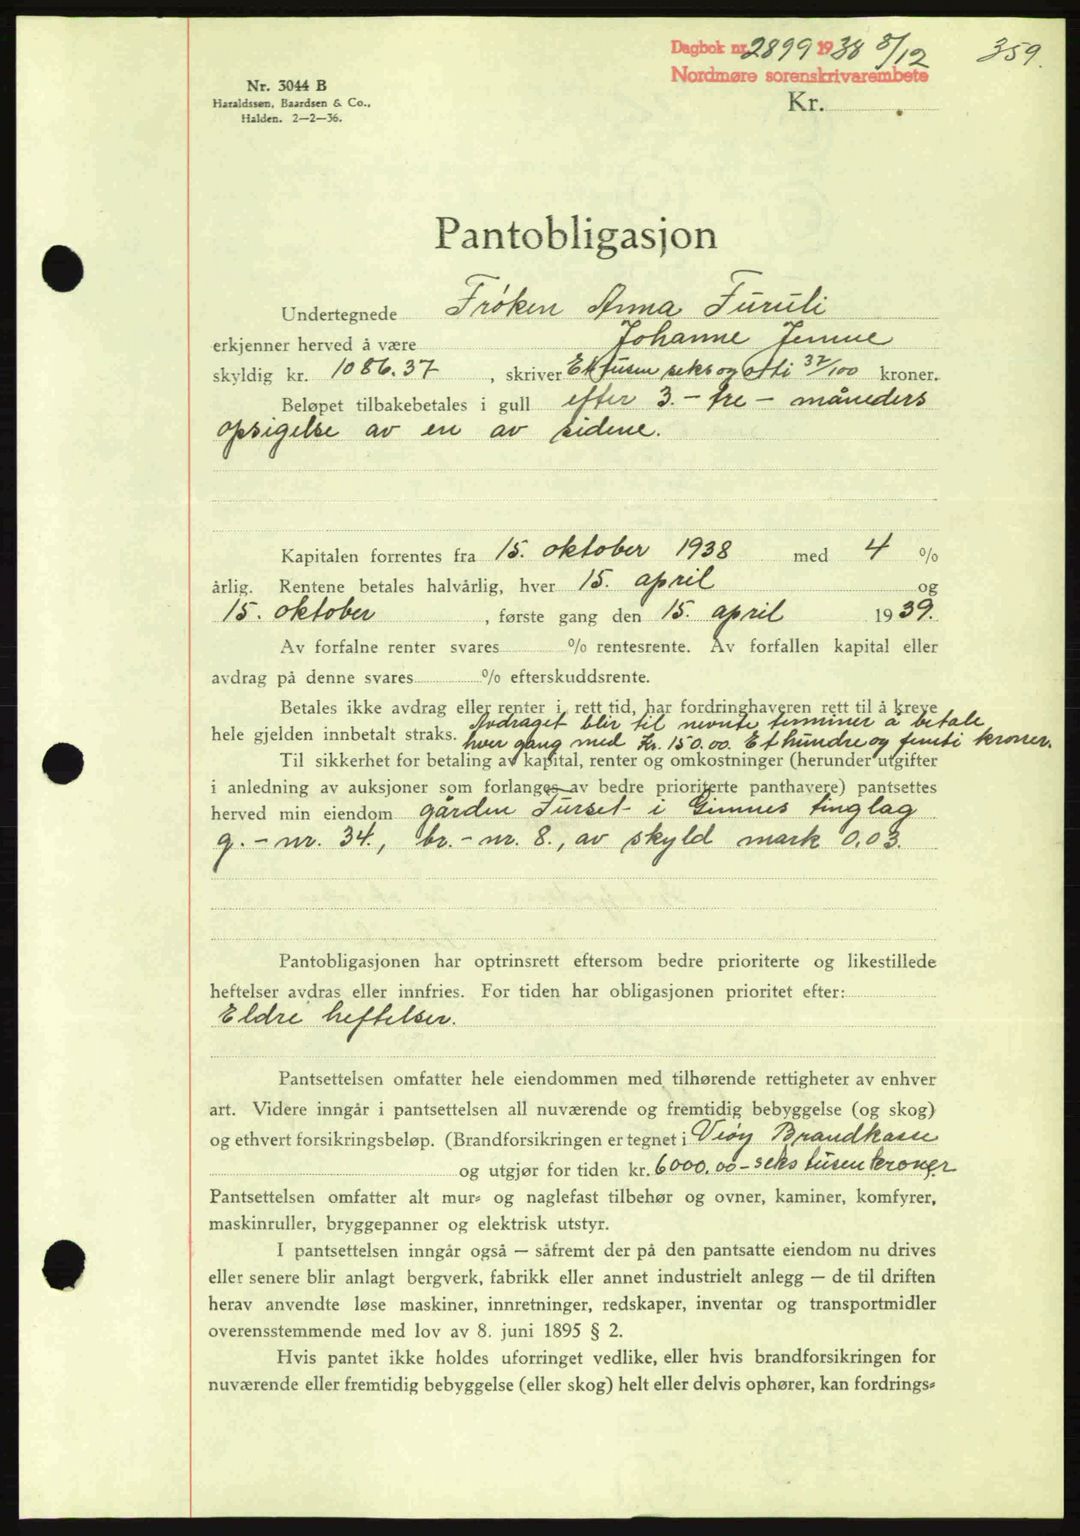 Dagbok nr. 2899 1938 8/12 359.
Nordmøre sorenskrivarembete
Nr. 3044 B
Haraldssen, Baardsen & Co.,
Halden. 2—2—36.
Kr.
Pantobligasjon
Undertegnede Frøken Anna Furuli
erkjenner herved å være Johanne Jenne
skyldig kr. 1086.37, skriver Ettusen seksogotti 37/100 kroner.
Beløpet tilbakebetales i gull efter 3. - tre - måneders
opsigelse av en av sidene.
Kapitalen forrentes fra 15. oktober 1938 med 4 %
årlig. Rentene betales halvårlig, hver 15. april og
15. oktober, første gang den 15. april 1939.
Av forfalne renter svares % rentesrente. Av forfallen kapital eller
avdrag på denne svares % efterskuddsrente.
Betales ikke avdrag eller renter i rett tid, har fordringhaveren rett til å kreve
Avdraget blir til nevnte terminer å betale
hele gjelden innbetalt straks. hver gang med Kr. 150.00. Et hundre og femti kroner.
Til sikkerhet for betaling av kapital, renter og omkostninger (herunder utgifter
i anledning av auksjoner som forlanges av bedre prioriterte panthavere) pantsettes
herved min eiendom gården Furset i Gimnes tinglag
g. - nr. 34., br. - nr. 8., av skyld mark 0,03.
Pantobligasjonen har optrinsrett eftersom bedre prioriterte og likestillede
heftelser avdras eller innfries. For tiden har obligasjonen prioritet efter:
Eldre heftelser.
Pantsettelsen omfatter hele eiendommen med tilhørende rettigheter av enhver
art. Videre inngår i pantsettelsen all nuværende og fremtidig bebyggelse (og skog)
og ethvert forsikringsbeløp. (Brandforsikringen er tegnet i Veøy Brandkasse
og utgjør for tiden kr. 6000.00 - seks tusen kroner.
Pantsettelsen omfatter alt mur- og naglefast tilbehør og ovner, kaminer, komfyrer,
maskinruller, bryggepanner og elektrisk utstyr.
I pantsettelsen inngår også — såfremt der på den pantsatte eiendom nu drives
eller senere blir anlagt bergverk, fabrikk eller annet industrielt anlegg — de til driften
herav anvendte løse maskiner, innretninger, redskaper, inventar og transportmidler
overensstemmende med lov av 8. juni 1895 § 2.
Hvis pantet ikke holdes uforringet vedlike, eller hvis brandforsikringen for
nuværende eller fremtidig bebyggelse (eller skog) helt eller delvis ophører, kan fordrings-